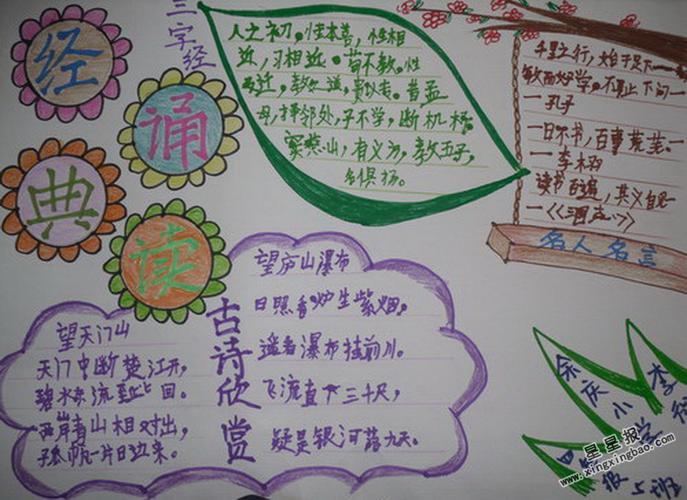 经
诵
典
读
三字经
人之初。性本善，性相
近，习相近。苟不教。性
迁，教之道，贵以专。昔孟
母，择邻处，子不学，断机杼。
窦燕山，有义方，教五子，
名俱扬。
千里之行，始于足下
敏而好学，不耻下问
一孔子
一日不书，百事荒芜。
一李栩
读书百遍，其义自见
名人名言
古诗欣赏
望庐山瀑布
日照香炉生紫烟，
遥看瀑布挂前川。
飞流直下三千尺，
疑是银河落九天。
望天门山
天门中断楚江开，
碧水东流至此回。
两岸青山相对出，
孤帆一片日边来。
余庆小学
5班
星星报
www.xingxingbao.com